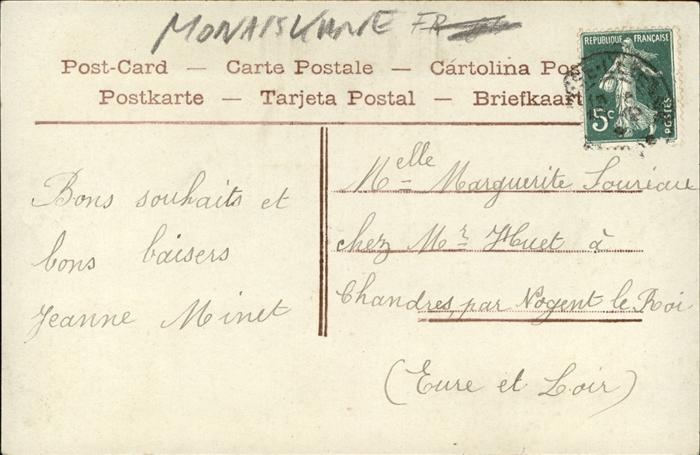 FR
Post-Card — Carte Postale — Cartolina Pos
Postkarte — Tarjeta Postal — Briefkaart
REPUBLIQUE FRANÇAISE
5c
POSTES
Bons souhaits et
bons baisers
Jeanne Minet
Melle Marguerite Louréau
chez Mr Huet à
Chandres, par Nogent le Roi
(Eure et Loir)